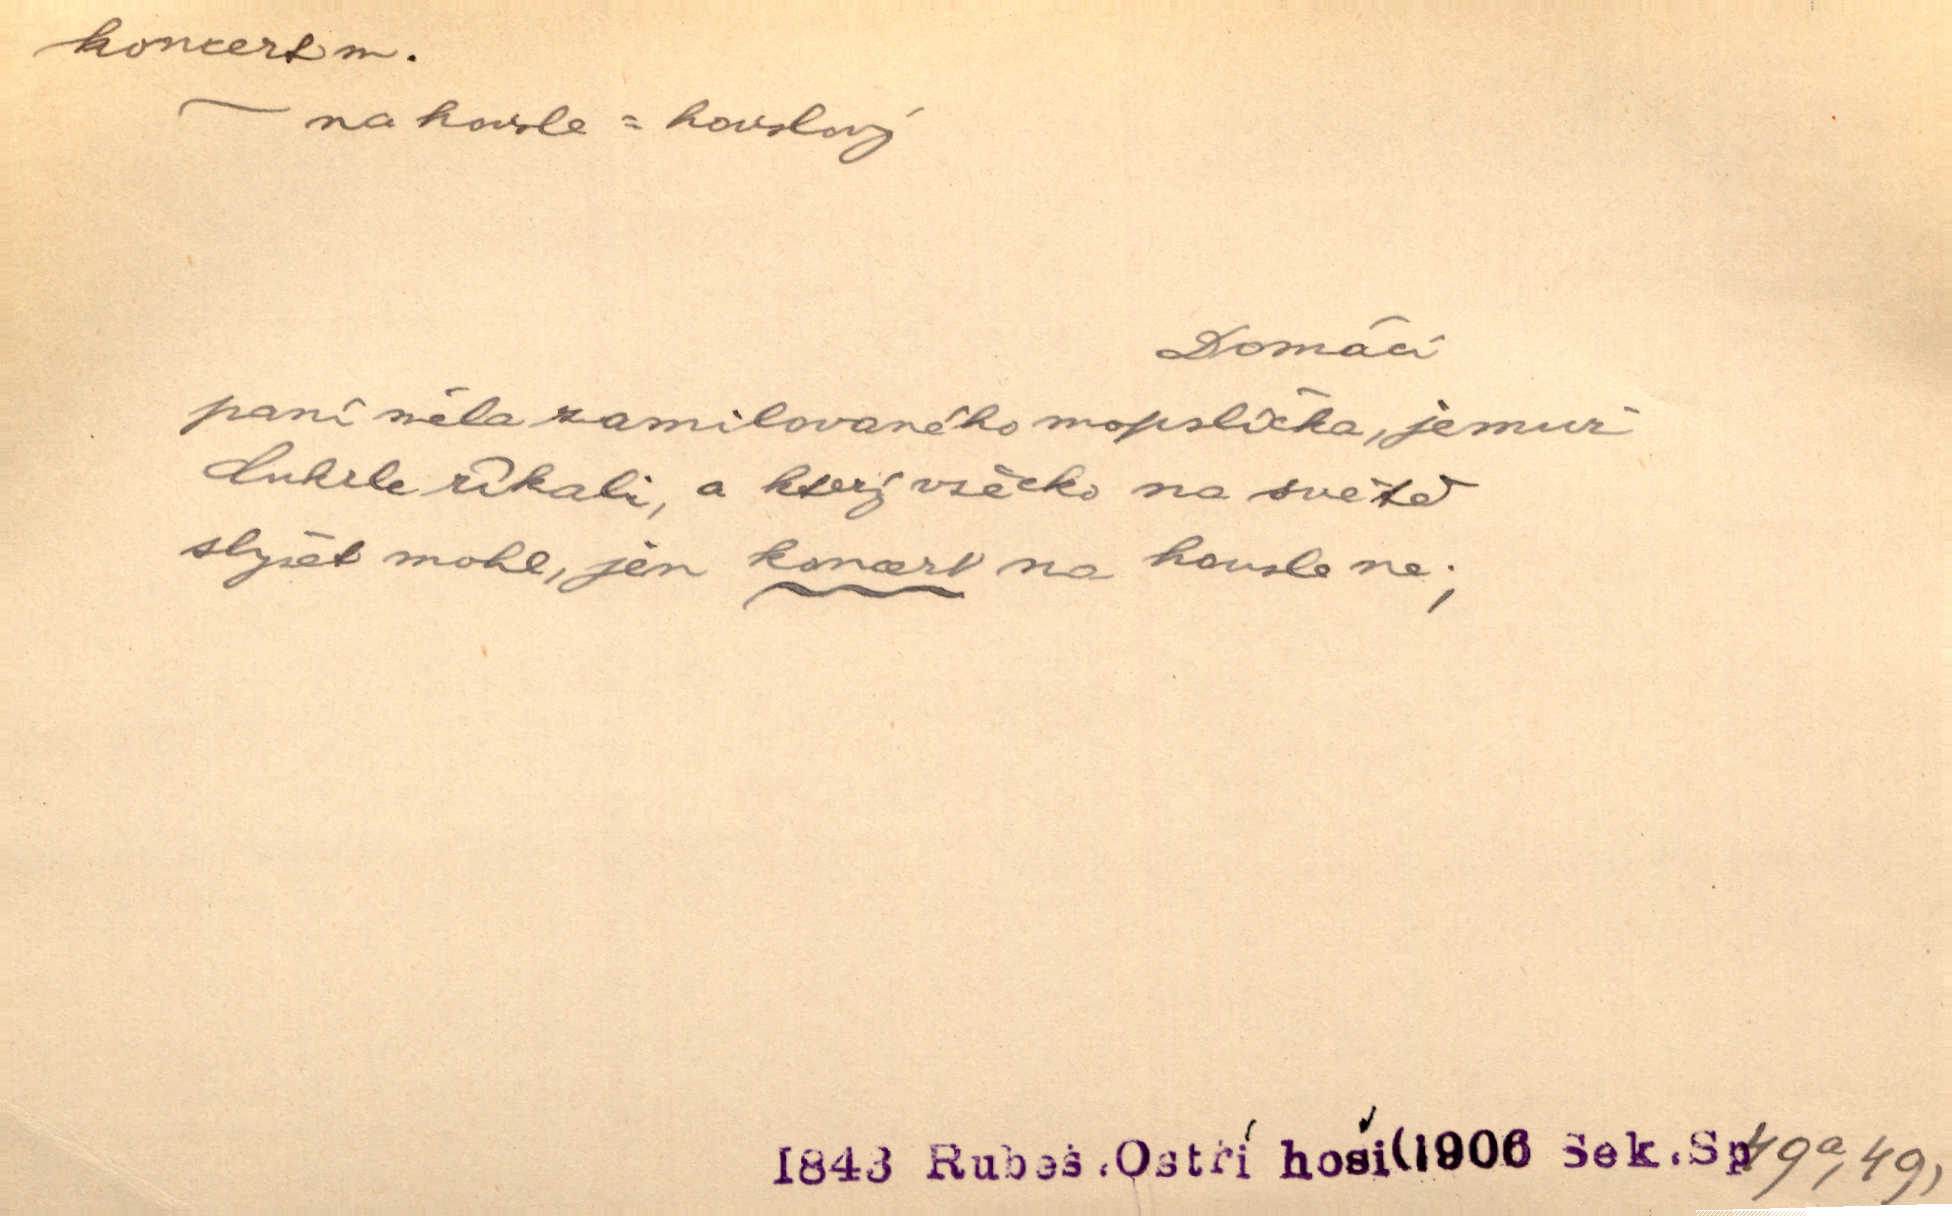 koncert m.
— na housle = houslový
Domácí
paní měla zamilovaného mopslíčka, jemuž
říkali, a který všecko na světě
slyšet mohl, jen koncert na housle ne;
1843 Rubeš.Ostří hoši(1906 Sek.Sp 49a, 49)